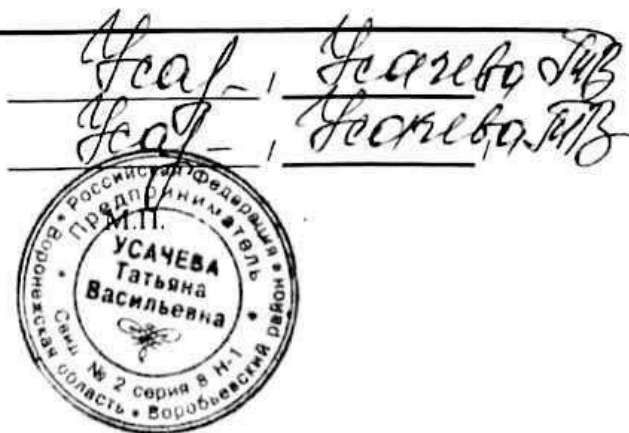 Усаф-, Усачева ТВ
Усаф-, Усачева ТВ
М.П.
* Российская Федерация * Воробьевский район * Воронежская область
Предприниматель
УСАЧЕВА
Татьяна
Васильевна
Свид. № 2 серия 8 Н-1